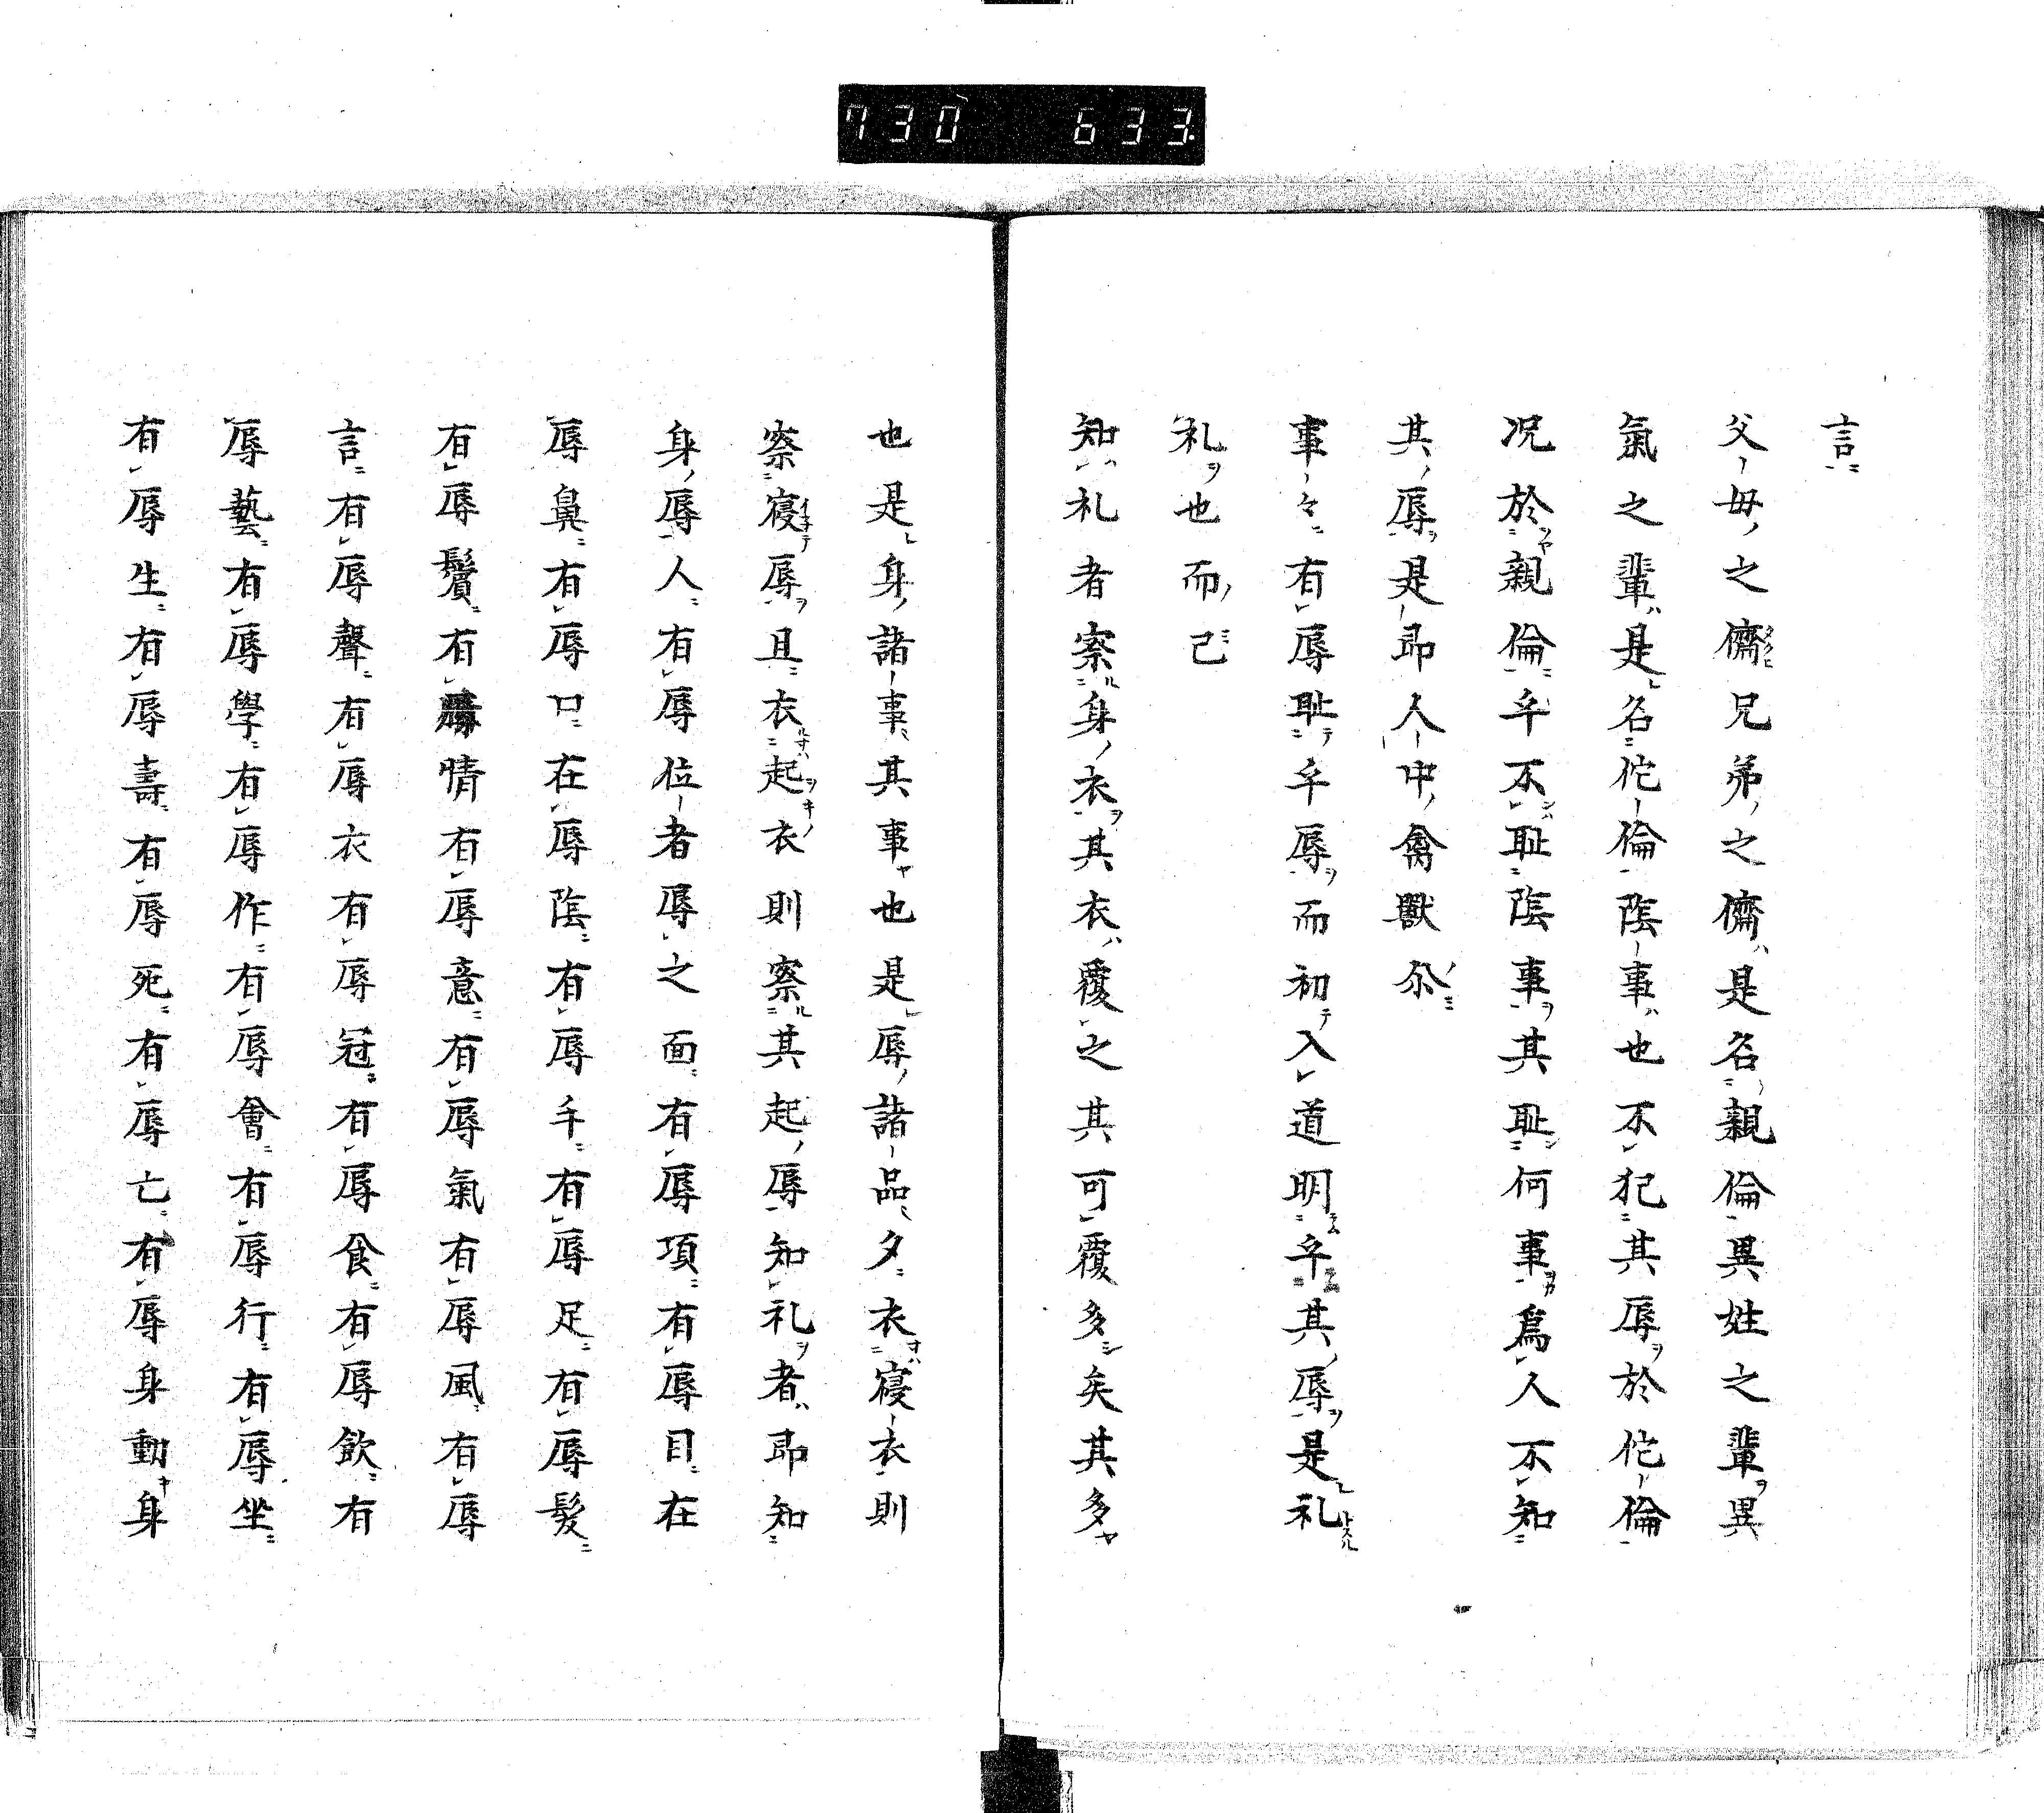 730 633
言
父母之儕兄弟之儕是名親倫異姓之輩異
氣之輩是名佗倫陰事也不犯其辱於佗倫
况於親倫乎不耻陰事其耻何事爲人不知
其辱是即人中禽獸尒
事々有辱耻乎辱而初入道明乎其辱是礼
礼也而己
知礼者察身衣其衣覆之其可覆多矣其多
也是身諸事其事也是辱諸品夕衣寢衣則
察寢辱且衣起衣則察其起辱知礼者即知
身辱人有辱位者辱之面有辱項有辱目在
辱鼻有辱口在辱陰有辱手有辱足有辱髮
有辱鬢有情有辱意有辱氣有辱風有辱
言有辱聲有辱衣有辱冠有辱食有辱飲有
辱藝有辱學有辱作有辱會有辱行有辱坐
有辱生有辱壽有辱死有辱亡有辱身動身